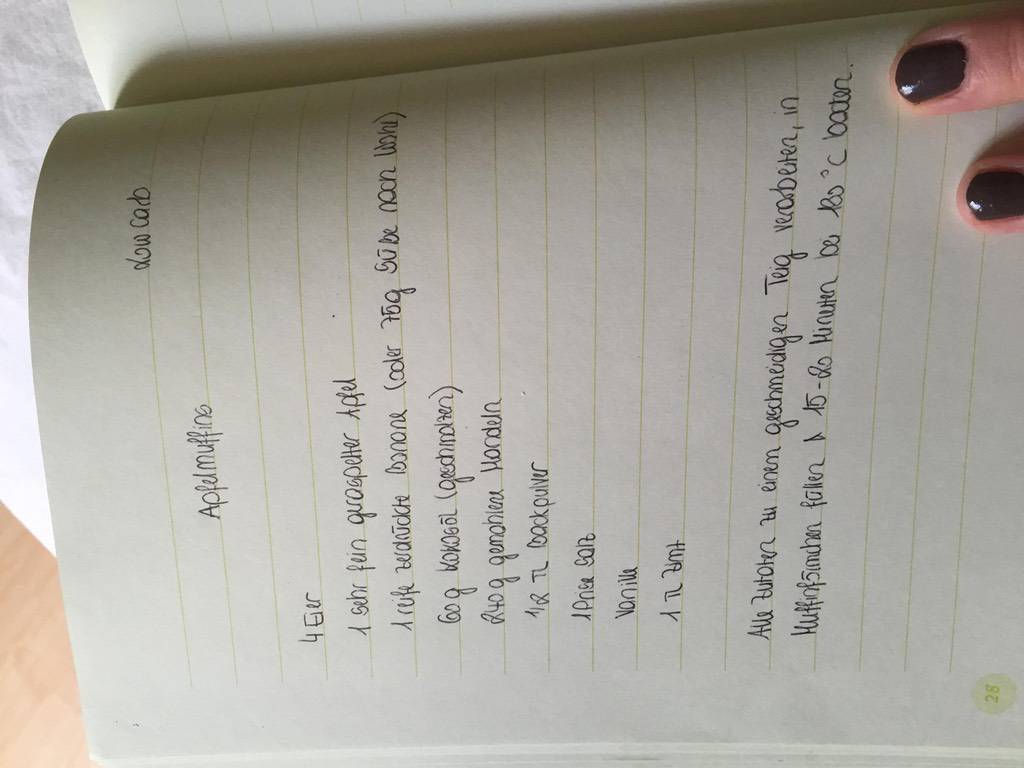 Low carb
Apfelmuffins
4 Eier
1 sehr fein geraspelter Apfel
1 reife zerdrückte Banane (oder 70g Süße nach Wahl)
60g Kokosöl (geschmolzen)
240g gemahlene Mandeln
1/2 TL Backpulver
1 Prise Salz
Vanille
1 TL Zimt
Alle Zutaten zu einem geschmeidigen Teig verarbeiten, in
Muffinförmchen füllen & 15-20 Minuten bei 180°C backen.
28